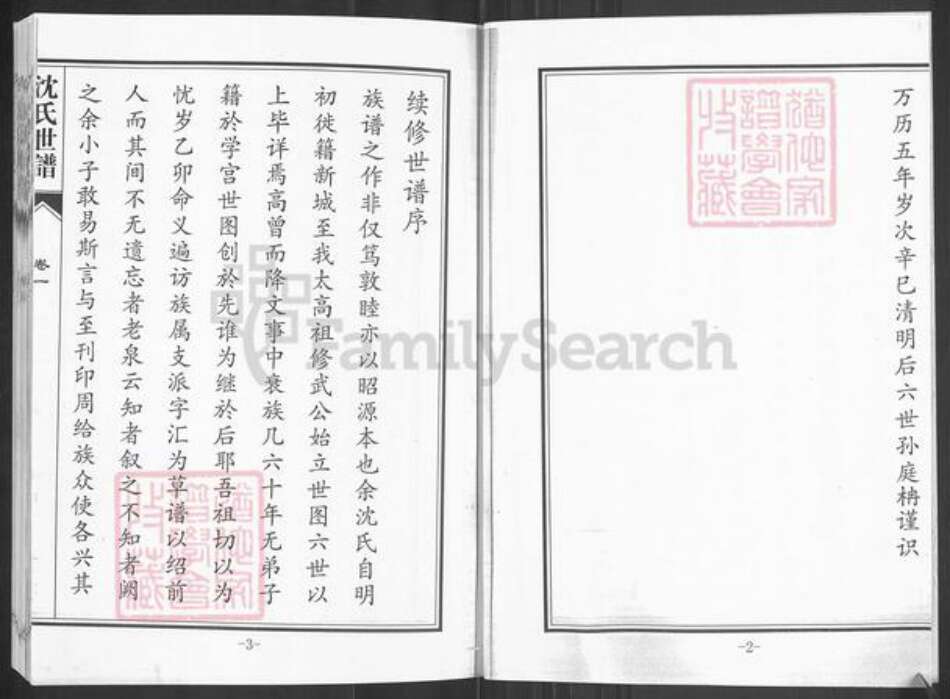 万历五年岁次辛巳清明后六世孙庭柟谨识
-2-
续修世谱序
族谱之作非仅笃敦睦亦以昭源本也余沈氏自明
初徙籍新城至我太高祖修武公始立世图六世以
上毕详焉高曾而降文事中衰族几六十年无弟子
籍於学宫世图创於先谁为继於后耶吾祖切以为
忧岁乙卯命义遍访族属支派字汇为草谱以绍前
人而其间不无遗忘者老泉云知者叙之不知者阙
之余小子敢易斯言与至刊印周给族众使各兴其
沈氏世谱
卷一
-3-
FamilySearch